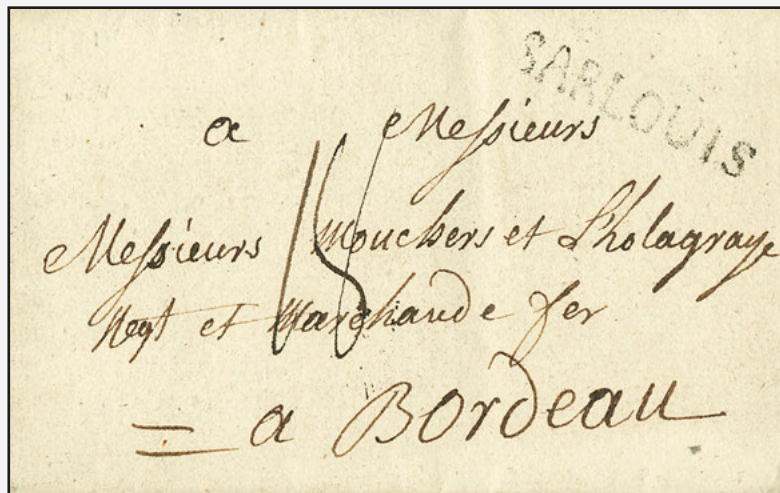 SARLOUIS
a Messieurs
Messieurs Mouchers et Lholagraye
Negt et Marchande fer
= a Bordeau